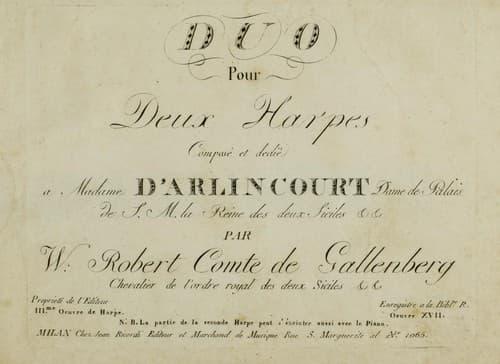 DUO
Pour
Deux Harpes
Composé et dedié
a Madame D'ARLINCOURT Dame de Palais
de S. M. la Reine des deux Siciles &.&.
PAR
W. Robert Comte de Gallenberg
Chevalier de l'ordre royal des deux Siciles &.&.
Proprieté de l'Editeur
Enregistre a la Bibl.e R.
III.me Oeuvre de Harpe.
Oeuvre XVII.
N. B. La partie de la seconde Harpe peut s'exécuter aussi avec le Piano.
MILAN Chez Jean Ricordi Editeur et Marchand de Musique Rue S. Marguerite al N.º 1065.